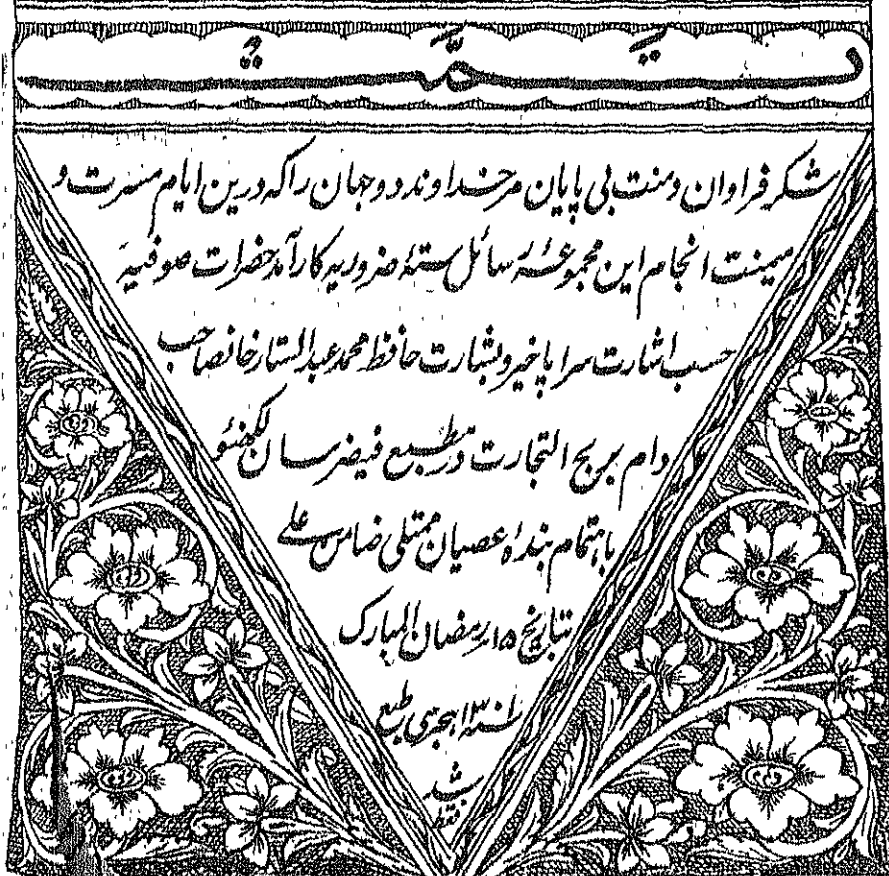 تَمَّتْ
شکر فراوان و منت بی پایان مر خداوند دو جهان را که درین ایام مسرت و
میمنت انجام این مجموعهٔ رسائل ستهٔ ضروریه کارآمد حضرات صوفیه
حسب اشارت سراپا خیر و بشارت حافظ محمد عبدالستار خانصاحب
دام بربح التجارت در مطبع فیض رسان لکهنئو
باهتمام بندهٔ عصیان ممتلی ضامن علی
بتاریخ ۱۵ رمضان المبارک
هجری طبع
شد
فقط